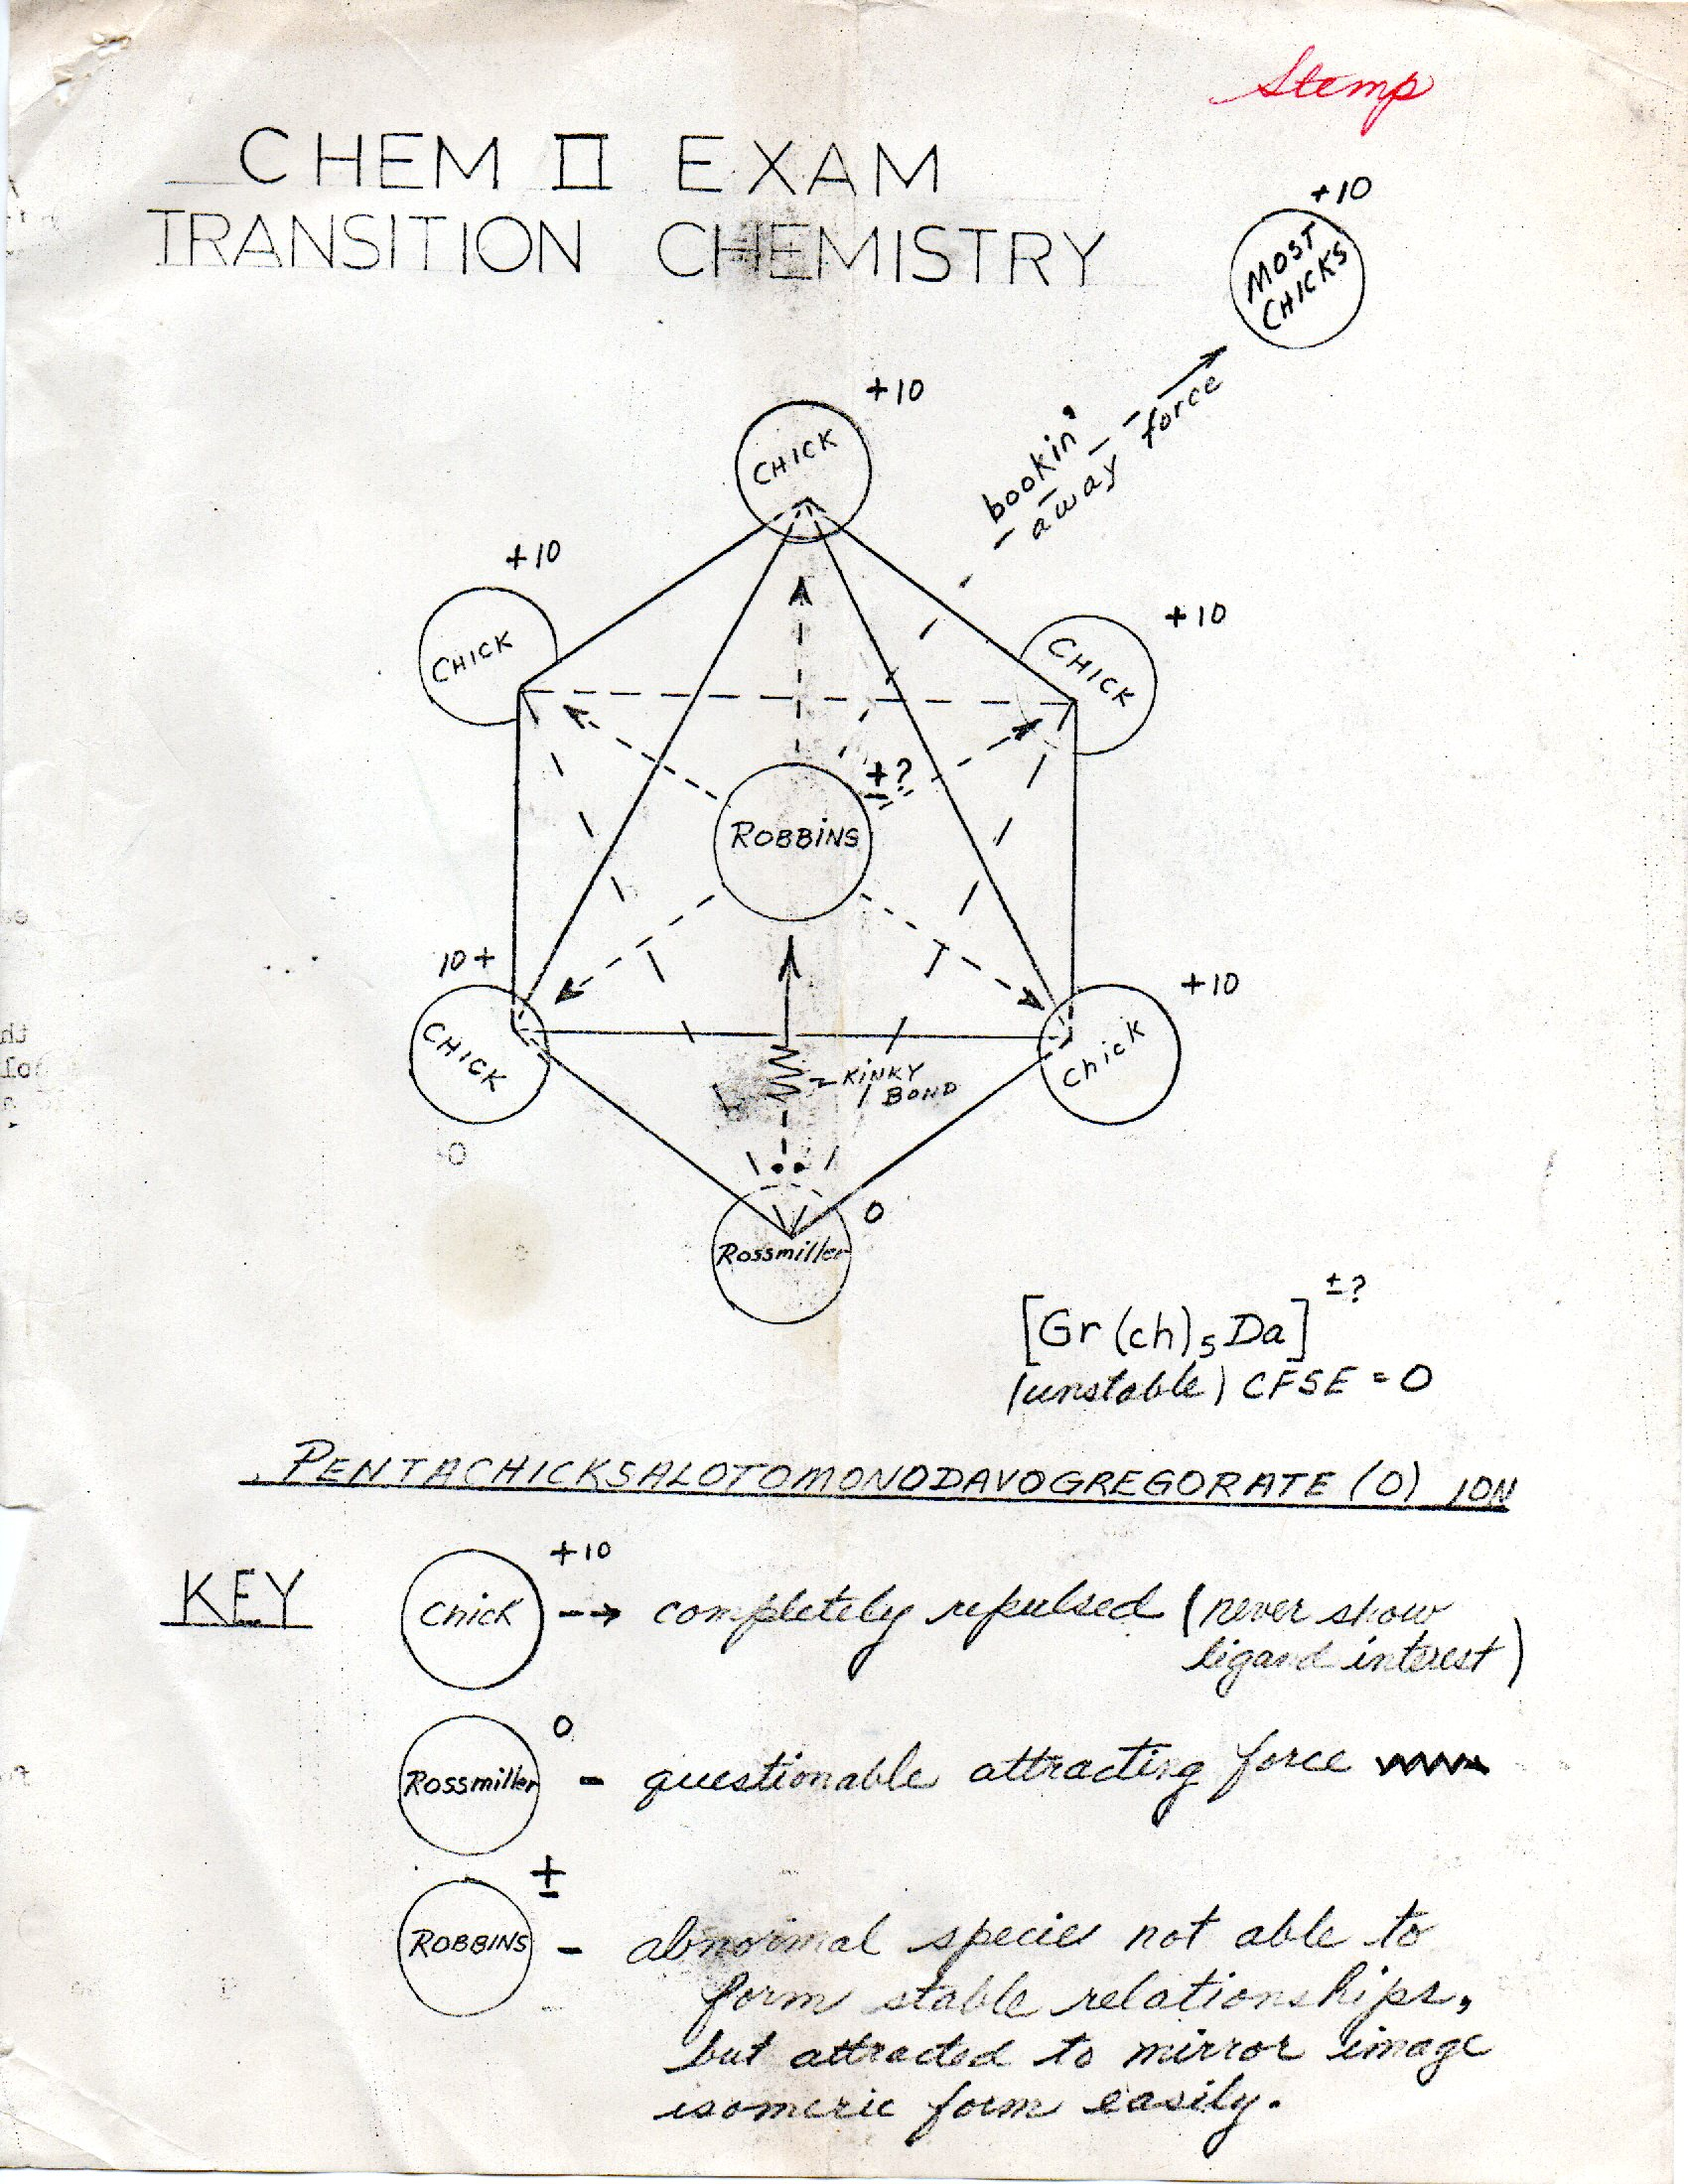 Stemp
CHEM II EXAM
TRANSITION CHEMISTRY
+10
MOST
CHICKS
bookin'
away force
+10
CHICK
+10
CHICK
+10
CHICK
±?
ROBBINS
10+
CHICK
+10
Chick
KINKY
BOND
0
Rossmiller
[Gr(ch)5Da]±?
(unstable) CFSE = 0
PENTACHICKSALOTOMONODAVOGREGORATE (0) ION
KEY
+10
Chick --→ completely repulsed (never show
ligand interest)
0
Rossmiller - questionable attracting force
±
ROBBINS - abnormal species not able to
form stable relationships,
but attracted to mirror image
isomeric form easily.